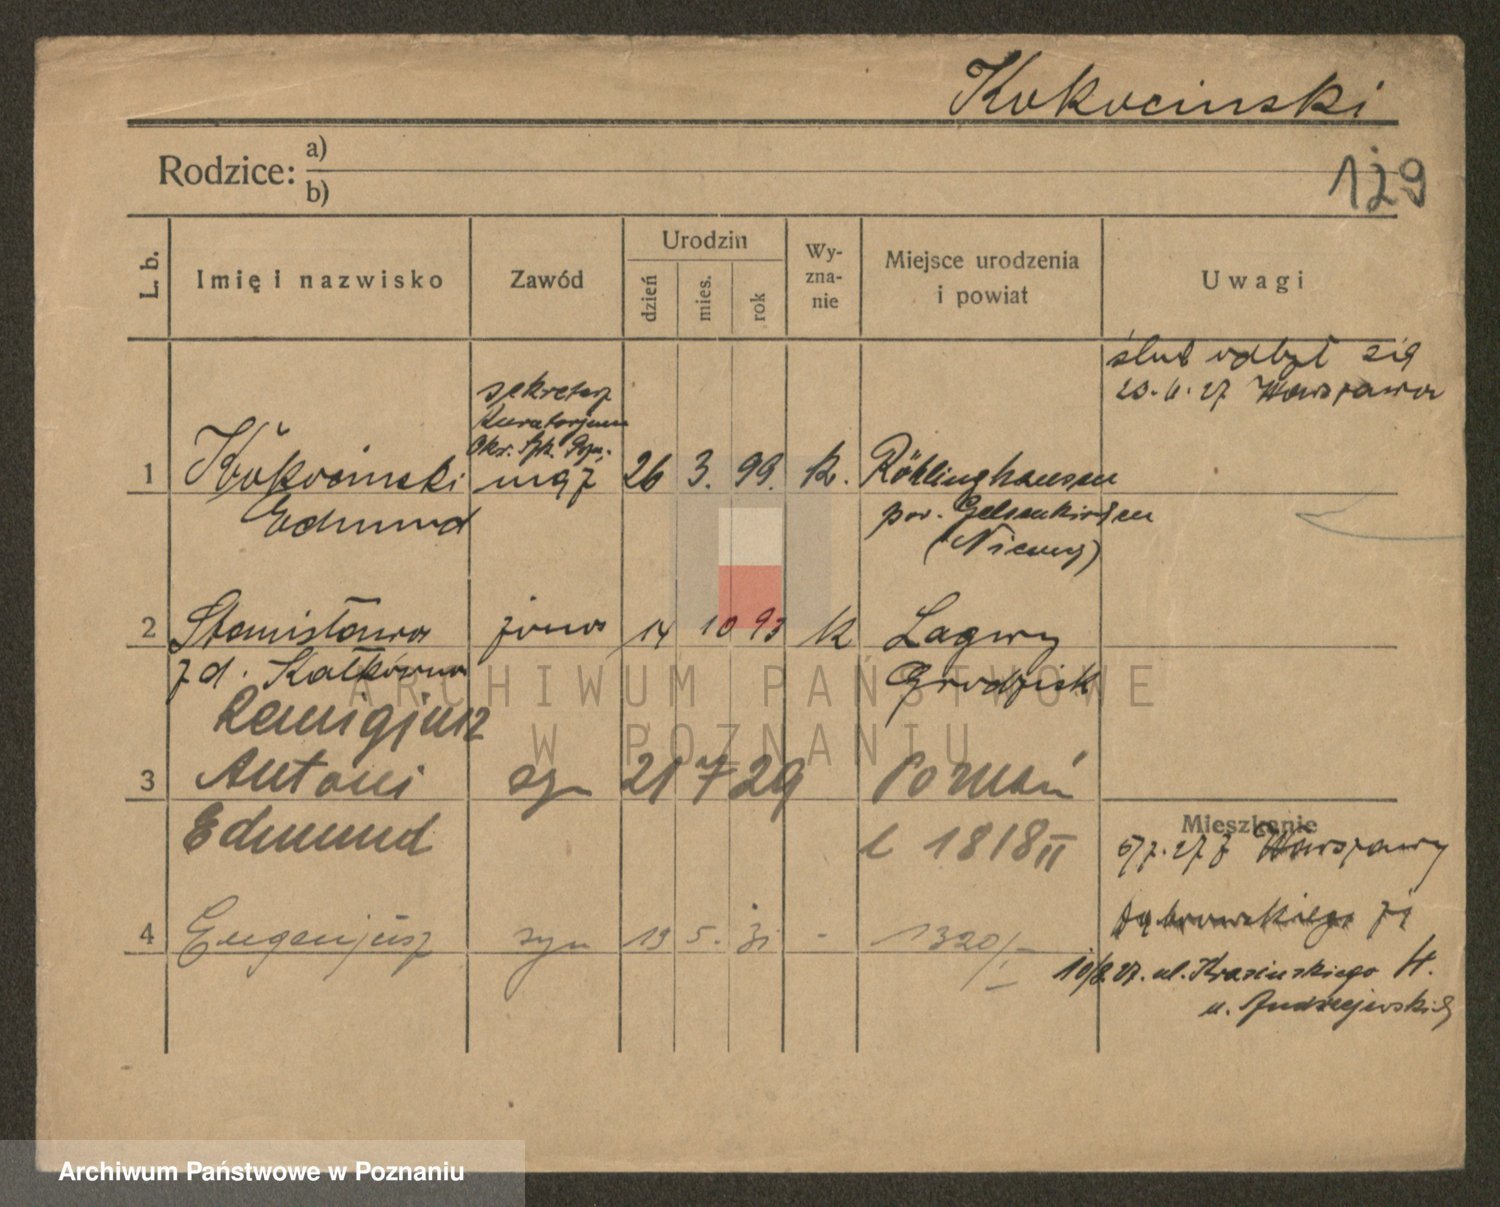 Kokocinski
129
Rodzice: a)
b)
L. b.
Imię i nazwisko
Zawód
Urodzin
dzień
mies.
rok
Wy-
zna-
nie
Miejsce urodzenia
i powiat
Uwagi
ślub odbył się
Warszawa
sekretarz
Kuratorjum
Okr. Szk. Pozn.
1 Kokocinski mąż 26 3. 99. k. Röhlinghausen
Edmund pow. Gelsenkirchen
(Niemcy)
2 Stanisława żona 14 10 93 k Łagwy
z d. Kałkówna Grodzisk
Remigjusz
3 Antoni syn 21 7 29 Poznań
Edmund 1818 II
Mieszkanie
z Warszawy
Dąbrowskiego
4 Eugenjusz syn 19 5. 31 - 1320/
10/8.27. ul. Krasinskiego 4.
u. Andrzejewskiej
ARCHIWUM PAŃSTWOWE
W POZNANIU
Archiwum Państwowe w Poznaniu